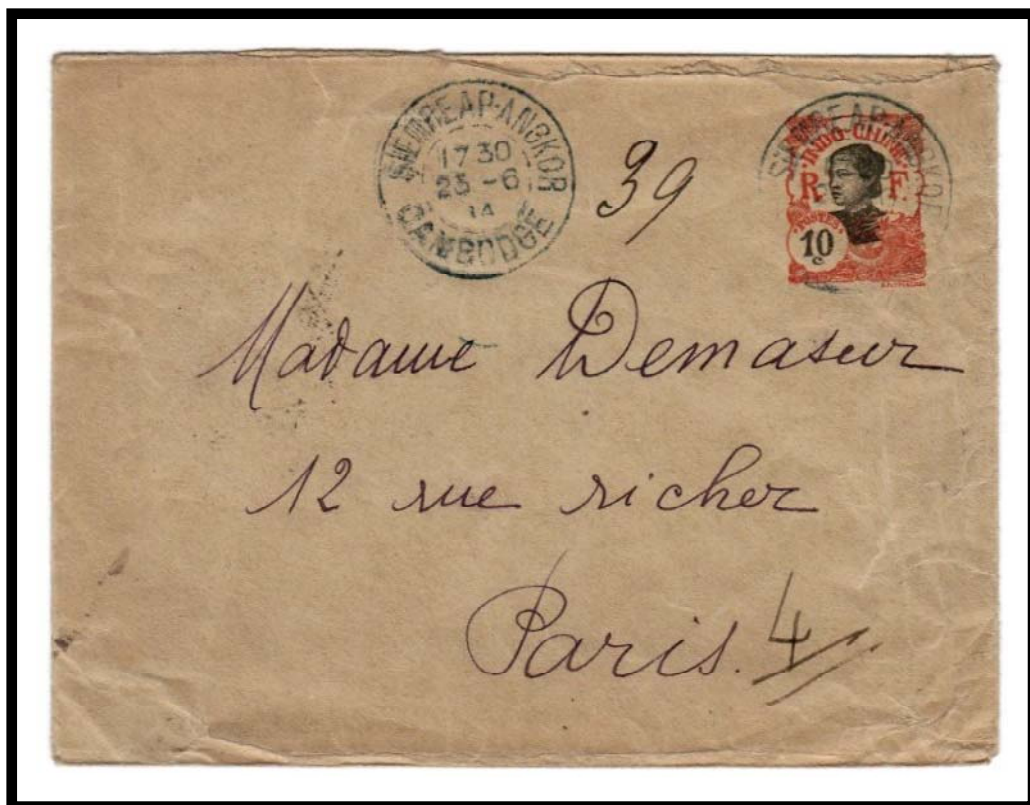 SIEMREAP-ANGKOR
17 30
23 -6
14
CAMBODGE
39
SIEMREAP-ANGKOR
INDO-CHINE
R F.
POSTES
10
c
Madame Demaseur
12 rue richer
Paris. 4